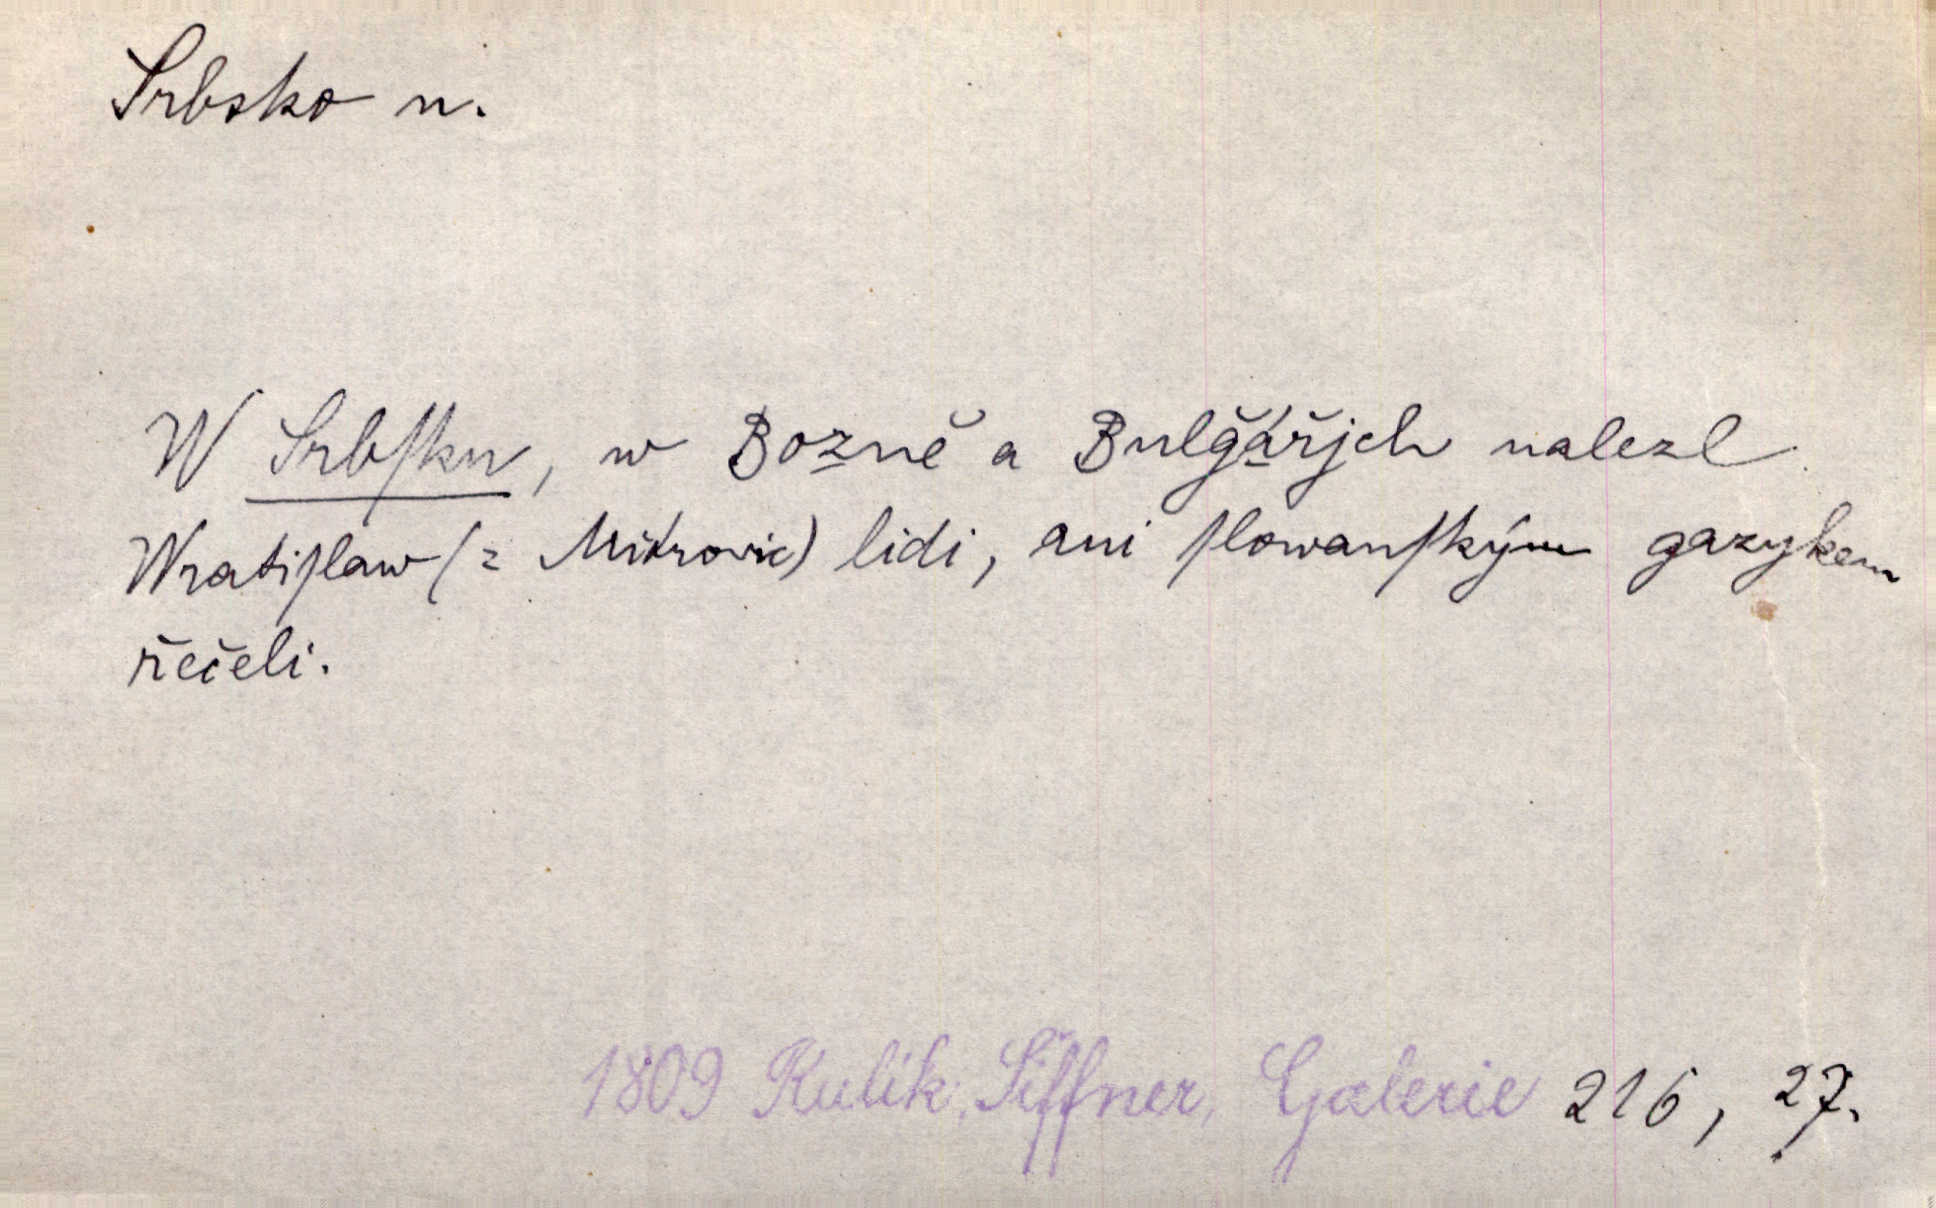 Srbsko n.
W Srbſku, w Bozně a Bulǧářjch nalezl
Wratiſlaw (z Mitrovic) lidi, ani ſlowanſkým gazykem
řečeli.
1809 Kulík, Šiffner, Galerie 216, 27.